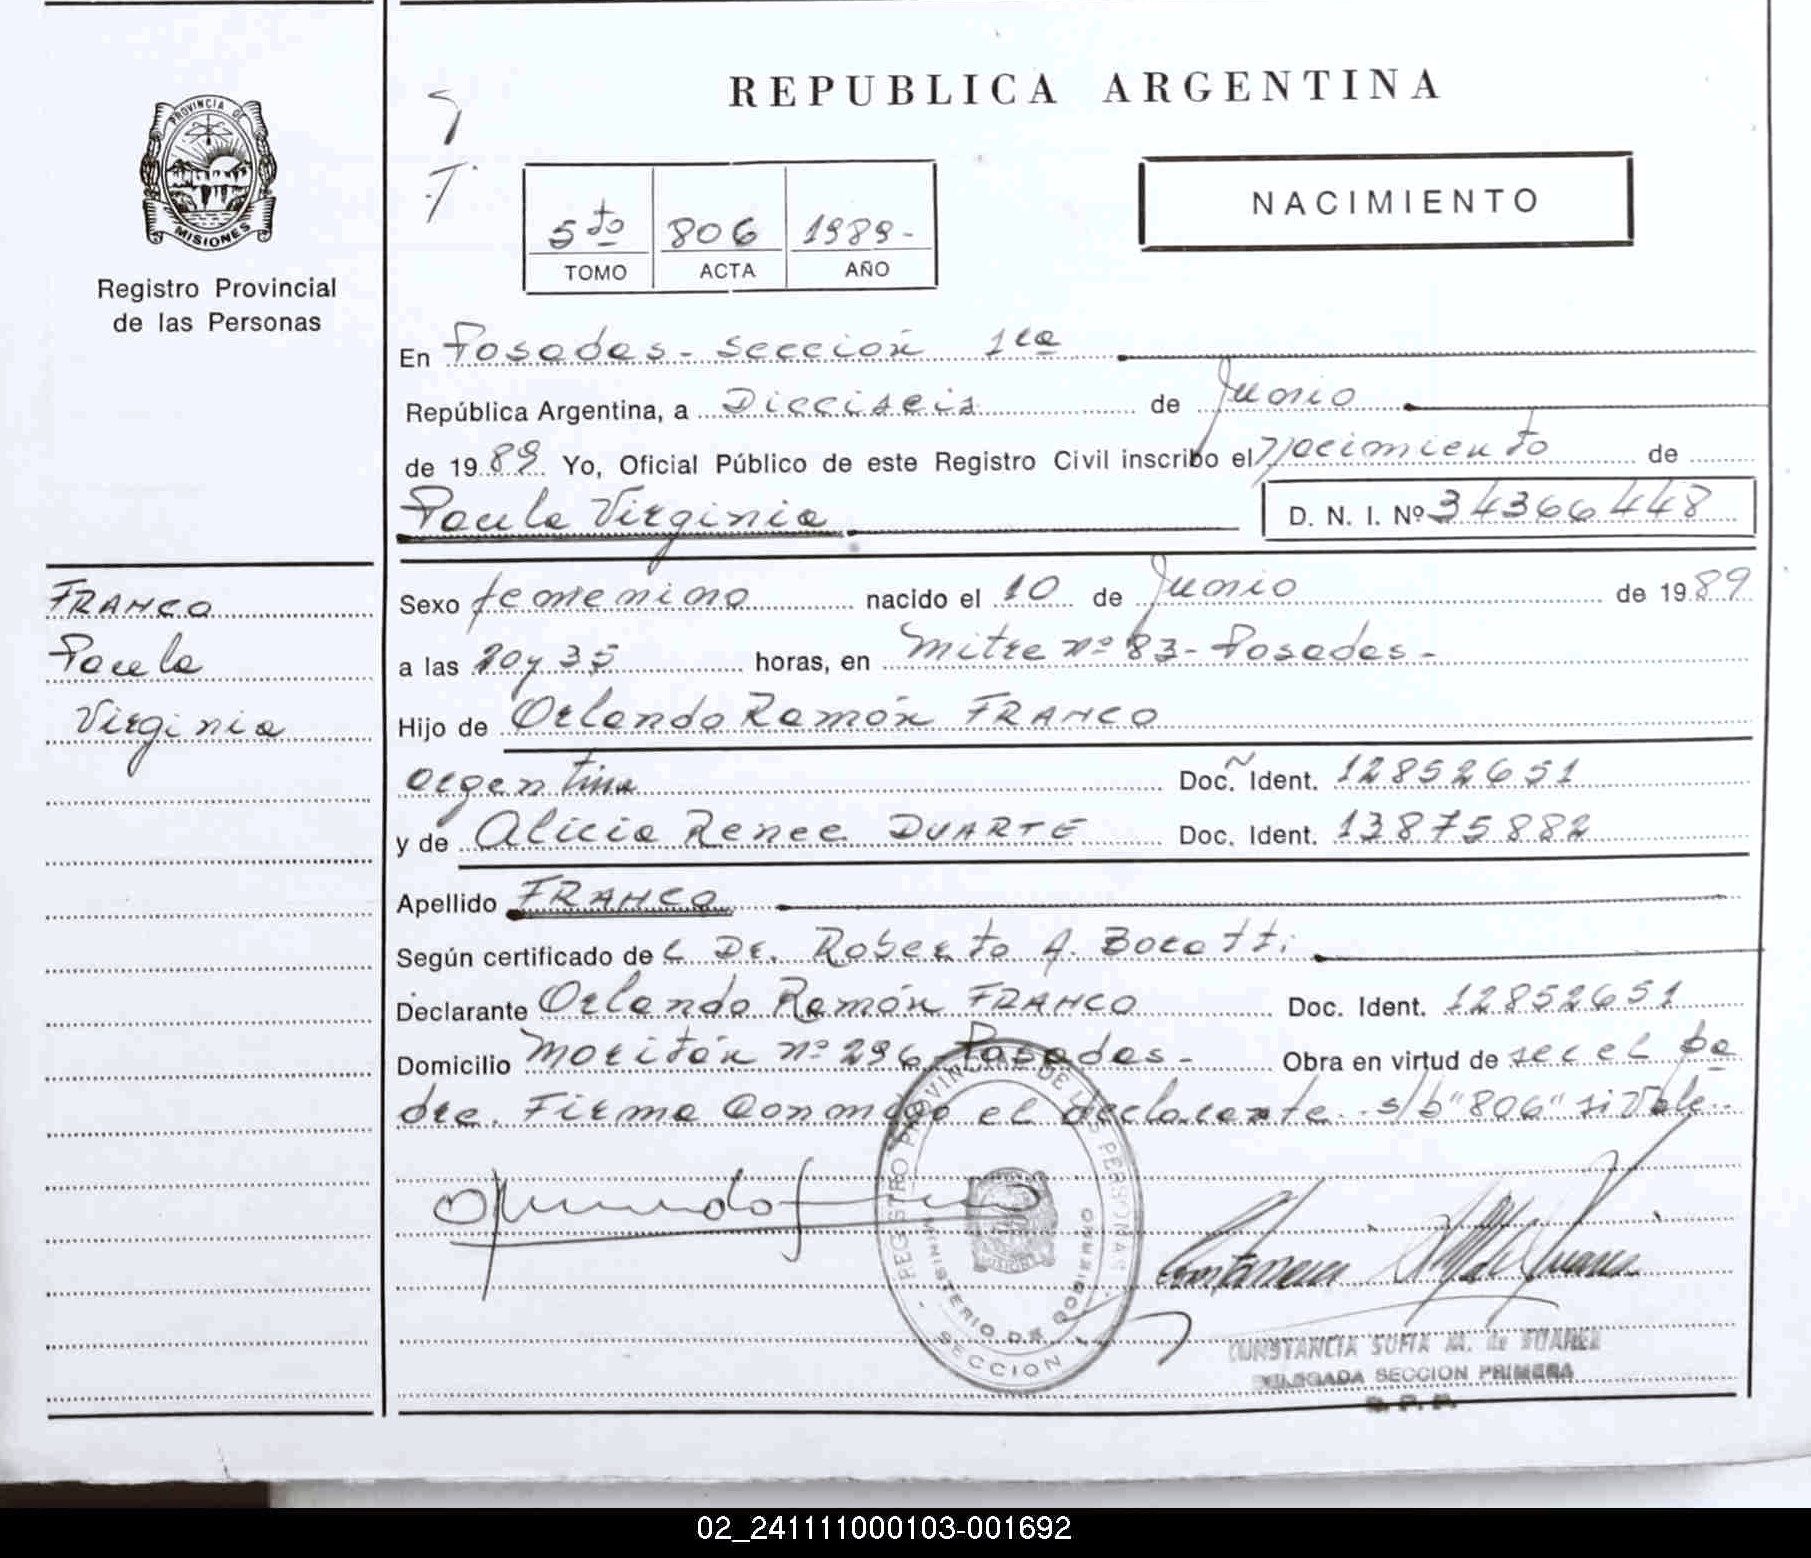 REPUBLICA ARGENTINA
PROVINCIA DE
MISIONES
Registro Provincial
de las Personas
NACIMIENTO
5to 806 1989-
TOMO ACTA AÑO
En Posadas - Sección 1ra
República Argentina, a Dieciseis de Junio
de 1989 Yo, Oficial Público de este Registro Civil inscribo el Nacimiento de
Paula Virginia D. N. I. Nº 34366448
FRANCO
Paula
Virginia
Sexo femenino nacido el 10 de Junio de 1989
a las 20 y 35 horas, en Mitre nº 83 - Posadas -
Hijo de Orlando Ramón FRANCO
argentino Doc. Ident. 12852651
y de Alicia Renee DUARTE Doc. Ident. 13875882
Apellido FRANCO
Según certificado de L Dr. Roberto A.
Declarante Orlando Ramón FRANCO Doc. Ident. 12852651
Domicilio nº 296 Posadas - Obra en virtud de ser el pa
dre. Firma Conmigo el declarante. s/b "806" si Vale.
REGISTRO PROVINCIAL DE LAS PERSONAS
MINISTERIO DE GOBIERNO
SECCION 1
CONSTANCIA SOFIA M. de SUAREZ
DELEGADA SECCION PRIMERA
R. P. P.
02_241111000103-001692